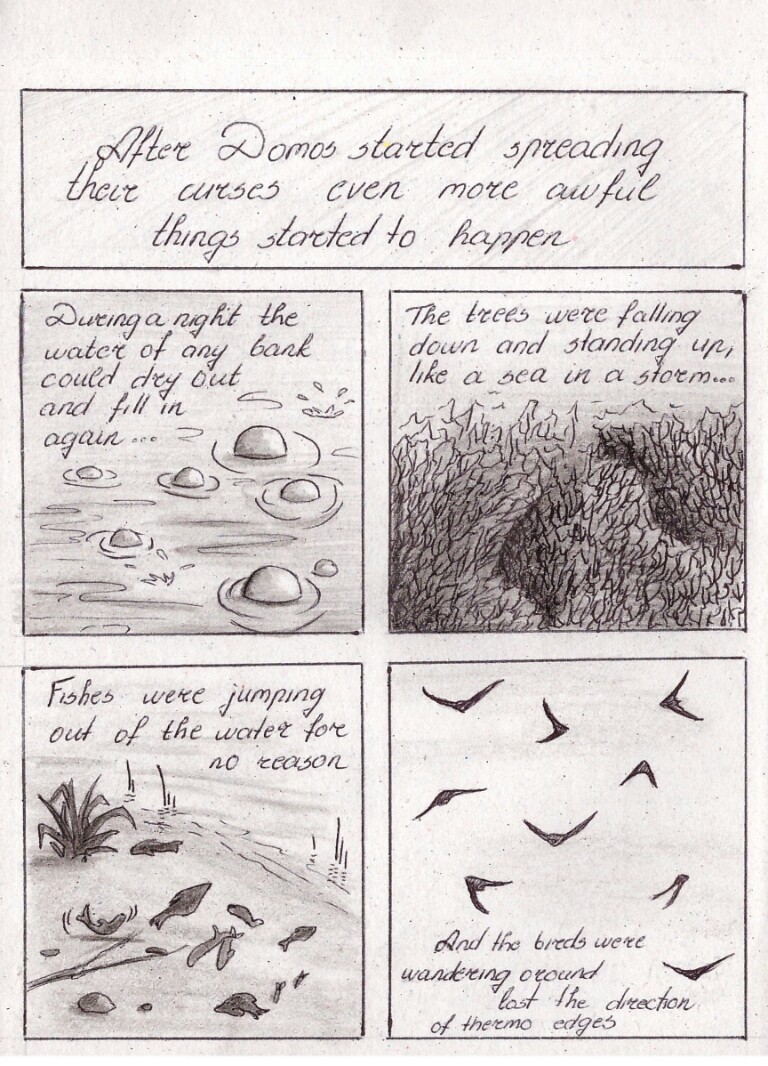 After Domos started spreading
their curses even more awful
things started to happen
During a night the
water of any bank
could dry out
and fill in
again...
The trees were falling
down and standing up,
like a sea in a storm...
Fishes were jumping
out of the water for
no reason
And the birds were
wandering around
lost the direction
of thermo edges